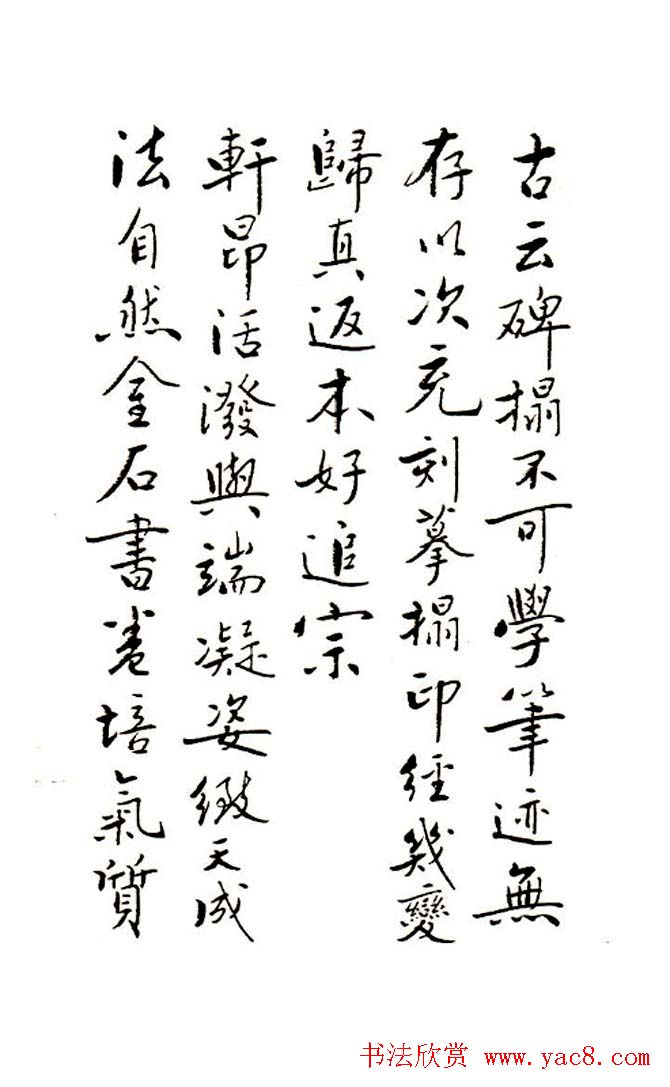 古云碑搨不可學筆迹無
存以次充刻摹搨印經幾變
歸真返本好追宗
軒昂活潑與端凝姿緻天成
法自然金石書卷培氣質
书法欣赏 www.yac8.com